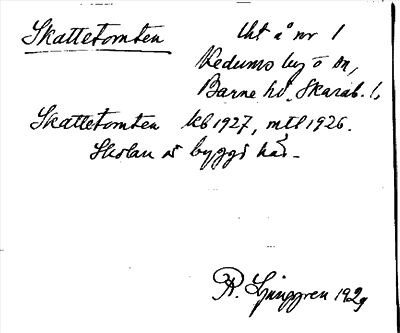 Skattetomten
lht å nr 1
Redums by o sn,
Barne hd, Skarab. l.
Skattetomten kb 1927, mtl 1926.
Skolan är byggd här.
R. Ljunggren 1929